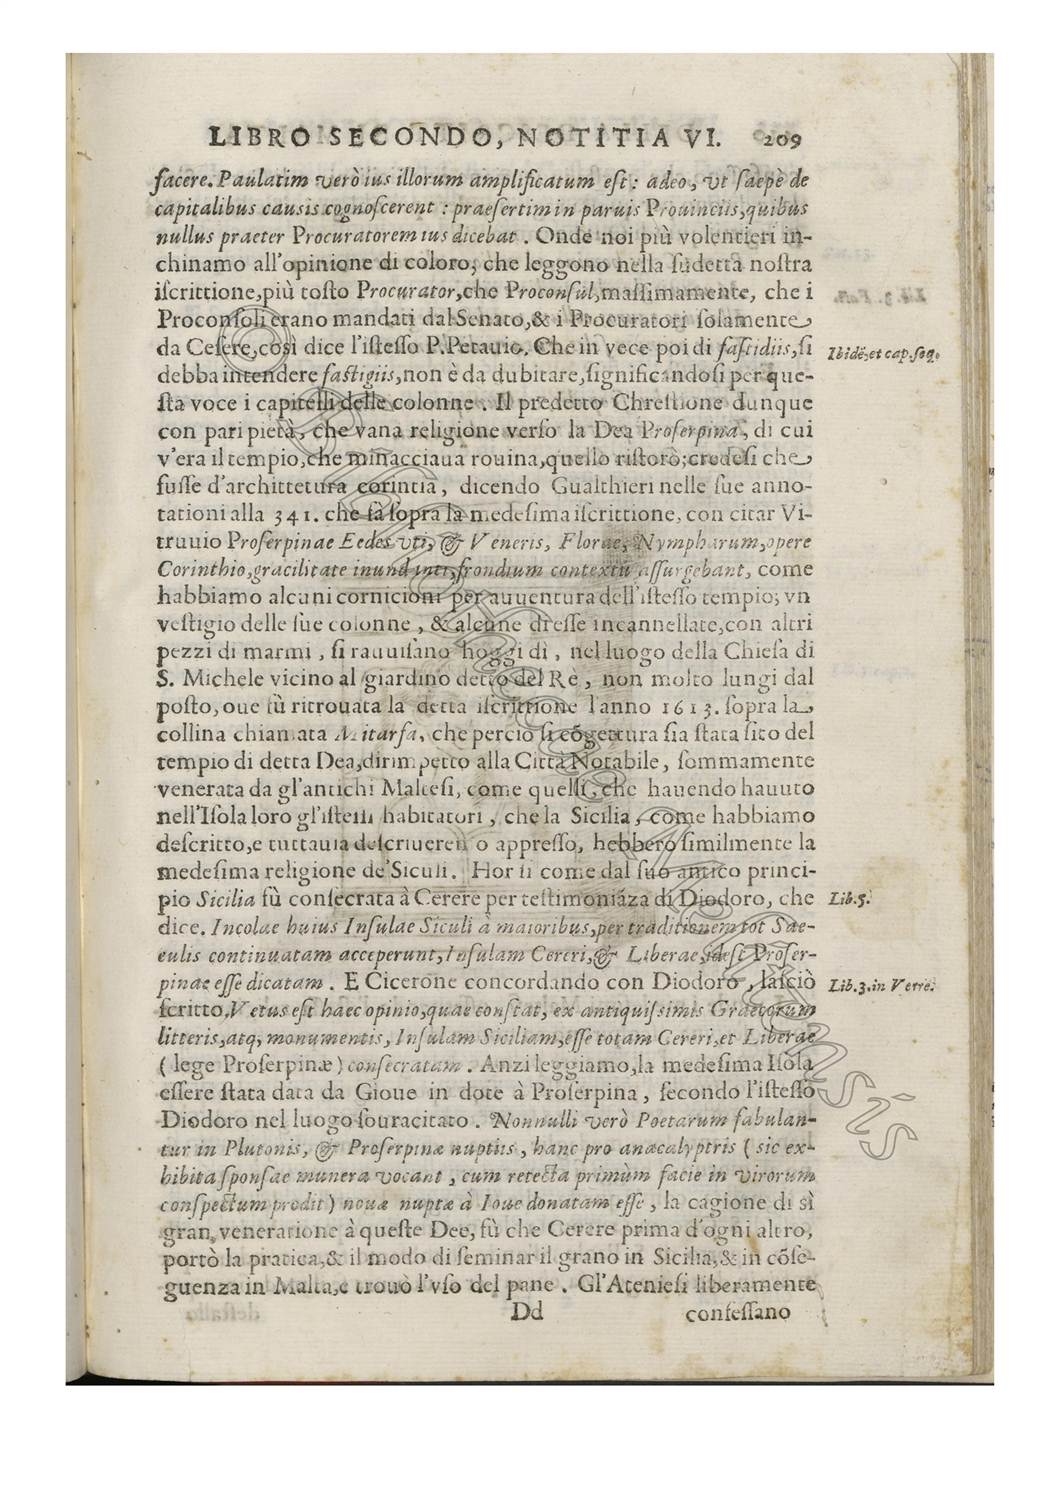 LIBRO SECONDO, NOTITIA VI. 209
facere. Paulatim verò ius illorum amplificatum eſt: adeo, vt ſaepè de
capitalibus causis cognoſcerent: praeſertim in paruis Prouinciis, quibus
nullus praeter Procuratorem ius dicebat. Onde noi più volentieri in-
chinamo all'opinione di coloro, che leggono nella ſudetta noſtra
iſcrittione, più toſto Procurator, che Proconſul, maſſimamente, che i
Proconſoli erano mandati dal Senato, & i Procuratori ſolamente
da Ceſere, così dice l'iſteſſo P. Petauio. Che in vece poi di faſtidiis, ſi
Ibidē, et cap. ſeq.
debba intendere faſtigiis, non è da dubitare, ſignificandoſi per que-
ſta voce i capitelli delle colonne. Il predetto Chreſtione dunque
con pari pietà, che vana religione verſo la Dea Proſerpina, di cui
v'era il tempio, che minacciaua rouina, quello riſtorò; credeſi che
fuſſe d'archittetura corintia, dicendo Gualthieri nelle ſue anno-
tationi alla 341. che fà ſopra la medeſima iſcrittione, con citar Vi-
truuio Proſerpinae Eedes vti, & Veneris, Florae, Nympharum, opere
Corinthio, gracilitate inund frondium contextū aſſurgebant, come
habbiamo alcuni cornicioni per auuentura dell'iſteſſo tempio; vn
veſtigio delle ſue colonne, & alcune d'eſſe incannellate, con altri
pezzi di marmi, ſi rauuiſano hoggi dì, nel luogo della Chieſa di
S. Michele vicino al giardino detto del Rè, non molto lungi dal
poſto, oue fù ritrouata la detta iſcrittione l'anno 1613. ſopra la
collina chiamata Mitarfa, che perciò ſi cōgettura ſia ſtata ſito del
tempio di detta Dea, dirimpetto alla Città Notabile, ſommamente
venerata da gl'antichi Malteſi, come quelli, che hauendo hauuto
nell'Iſola loro gl'iſteſſi habitatori, che la Sicilia, come habbiamo
deſcritto, e tuttauia deſcriueremo appreſſo, hebbero ſimilmente la
medeſima religione de'Siculi. Hor ſi come dal ſuo antico princi-
pio Sicilia fù conſecrata à Cerere per teſtimoniāza di Diodoro, che
Lib. 5.
dice. Incolae huius Inſulae Siculi à maioribus, per traditionem tot Sae-
culis continuatam acceperunt, Inſulam Cereri, & Liberae, ideſt Proſer-
pinae eſſe dicatam. E Cicerone concordando con Diodoro, laſciò
Lib. 3. in Verre.
ſcritto, Vetus eſt haec opinio, quae conſtat, ex antiquiſsimis Graecorum
litteris, atq; monumentis, Inſulam Siciliam, eſſe totam Cereri, et Liberae
(lege Proſerpinæ) conſecratam. Anzi leggiamo, la medeſima Iſola
eſſere ſtata data da Gioue in dote à Proſerpina, ſecondo l'iſteſſo
Diodoro nel luogo ſouracitato. Nonnulli verò Poetarum fabulan-
tur in Plutonis, & Proſerpinæ nuptiis, hanc pro anacalyptris (sic ex-
hibita ſponſae munera vocant, cum retecta primùm facie in virorum
conſpectum prodit) nouæ nuptæ à Ioue donatam eſſe, la cagione di sì
gran veneratione à queſte Dee, fù che Cerere prima d'ogni altro,
portò la pratica, & il modo di ſeminar il grano in Sicilia, & in cōſe-
guenza in Malta, e trouò l'vſo del pane. Gl'Atenieſi liberamente
Dd confeſſano